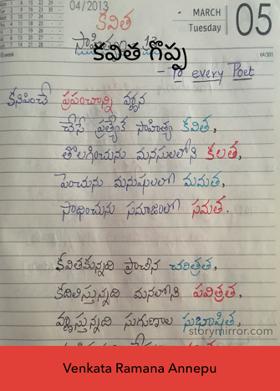 04/2013
MARCH
Tuesday
05
కవిత
కవిత గొప్ప
- To every Poet
కనిపించే ప్రపంచాన్ని వర్ణన
చేసే ప్రత్యేక సాహిత్య కవిత,
తొలగించును మనసులలోని కలత,
పెంచును మనుషులలో మమత,
సాధించును సమాజంలో సమత.
కవితకున్నది ప్రాచీన చరిత్రత,
కదిలిస్తున్నది మనలోని పవిత్రత,
వర్ణిస్తున్నది సుగుణాల సుభాషిత,
storymirror.com
Venkata Ramana Annepu